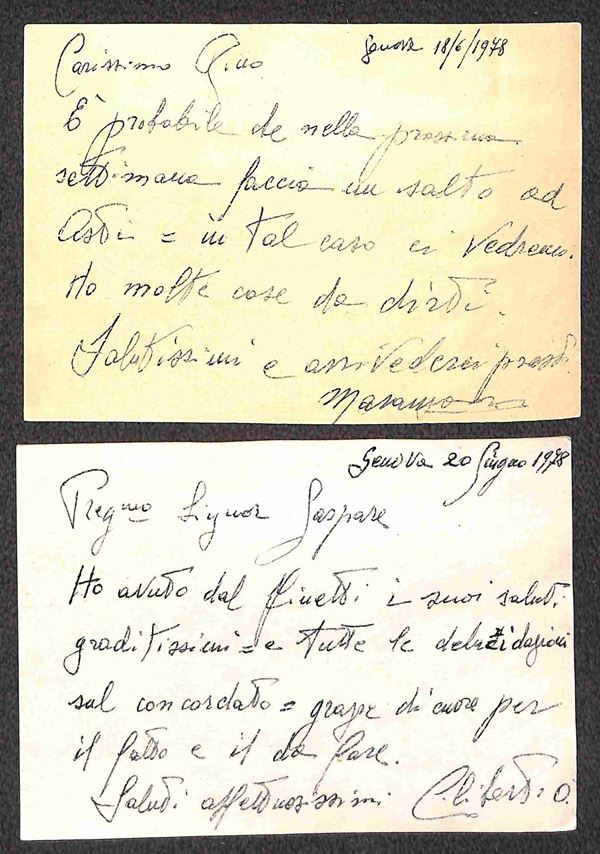 Genova 18/6/1978
Carissimo Gino
È probabile che nella prossima
settimana faccia un salto ad
Asti = in tal caso ci vedremo.
Ho molte cose da dirti.
Salutissimi e arrivederci presto
Genova 20 Giugno 1978
Pregmo Signor Gaspare
Ho avuto dal Pinetti i suoi saluti
graditissimi = e tutte le
sul concordato = grazie di cuore per
il fatto e il da fare.
Saluti affettuosissimi